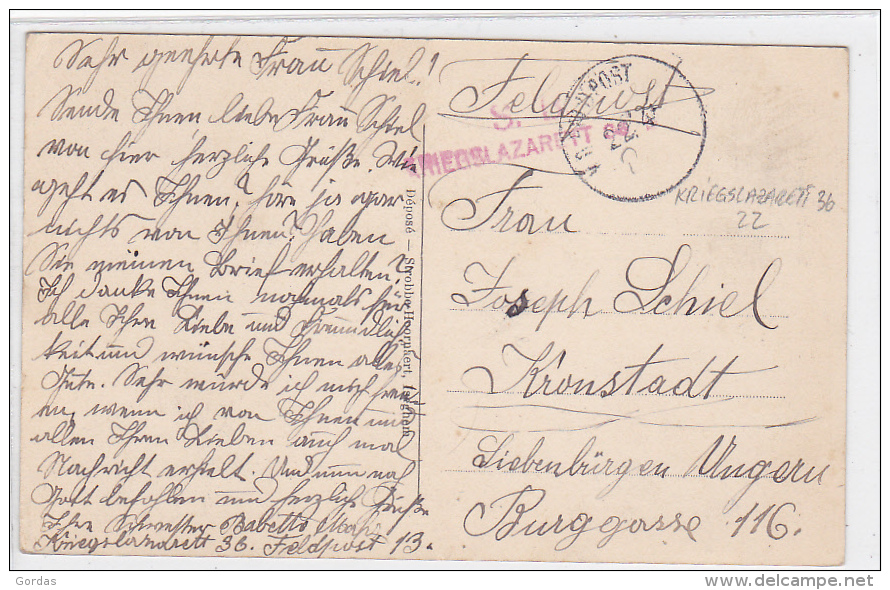 Sehr geehrte Frau Schiel!
Sende Ihnen liebe Frau Schiel
von hier herzliche Grüße. Wie
geht es Ihnen? höre ja gar
nichts von Ihnen? Haben
Sie meinen Brief erhalten?
Ich danke Ihnen nochmals für
alle Ihre Liebe und Freundlich
keit und wünsche Ihnen alles
Gute. Sehr würde ich mich freu
en, wenn ich von Ihnen und
allen Ihren Lieben auch mal
Nachricht erhielt. Und nun noch
Gott befohlen und herzliche Grüße
Ihre Schwester Babette
Kriegslazarett 36. Feldpost 13.
Déposé — Strobbe-Hoornkert, Iseghem
Feldpost
S.
KRIEGSLAZARETT
KRIEGSLAZARETT 36
22
Frau
Joseph Schiel
Kronstadt
Siebenbürgen Ungern
Burggasse 116.
Gordas
delcampe.net